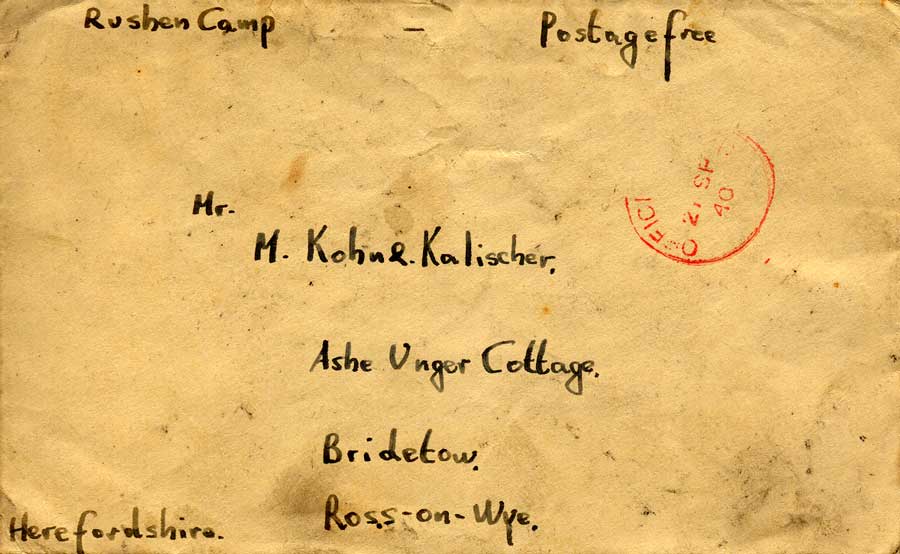 Rushen Camp – Postage free
OFFICI
21 SP
40
Mr.
M. Kohn & Kalischer,
Ashe Unger Cottage,
Bridstow,
Ross-on-Wye,
Herefordshire.